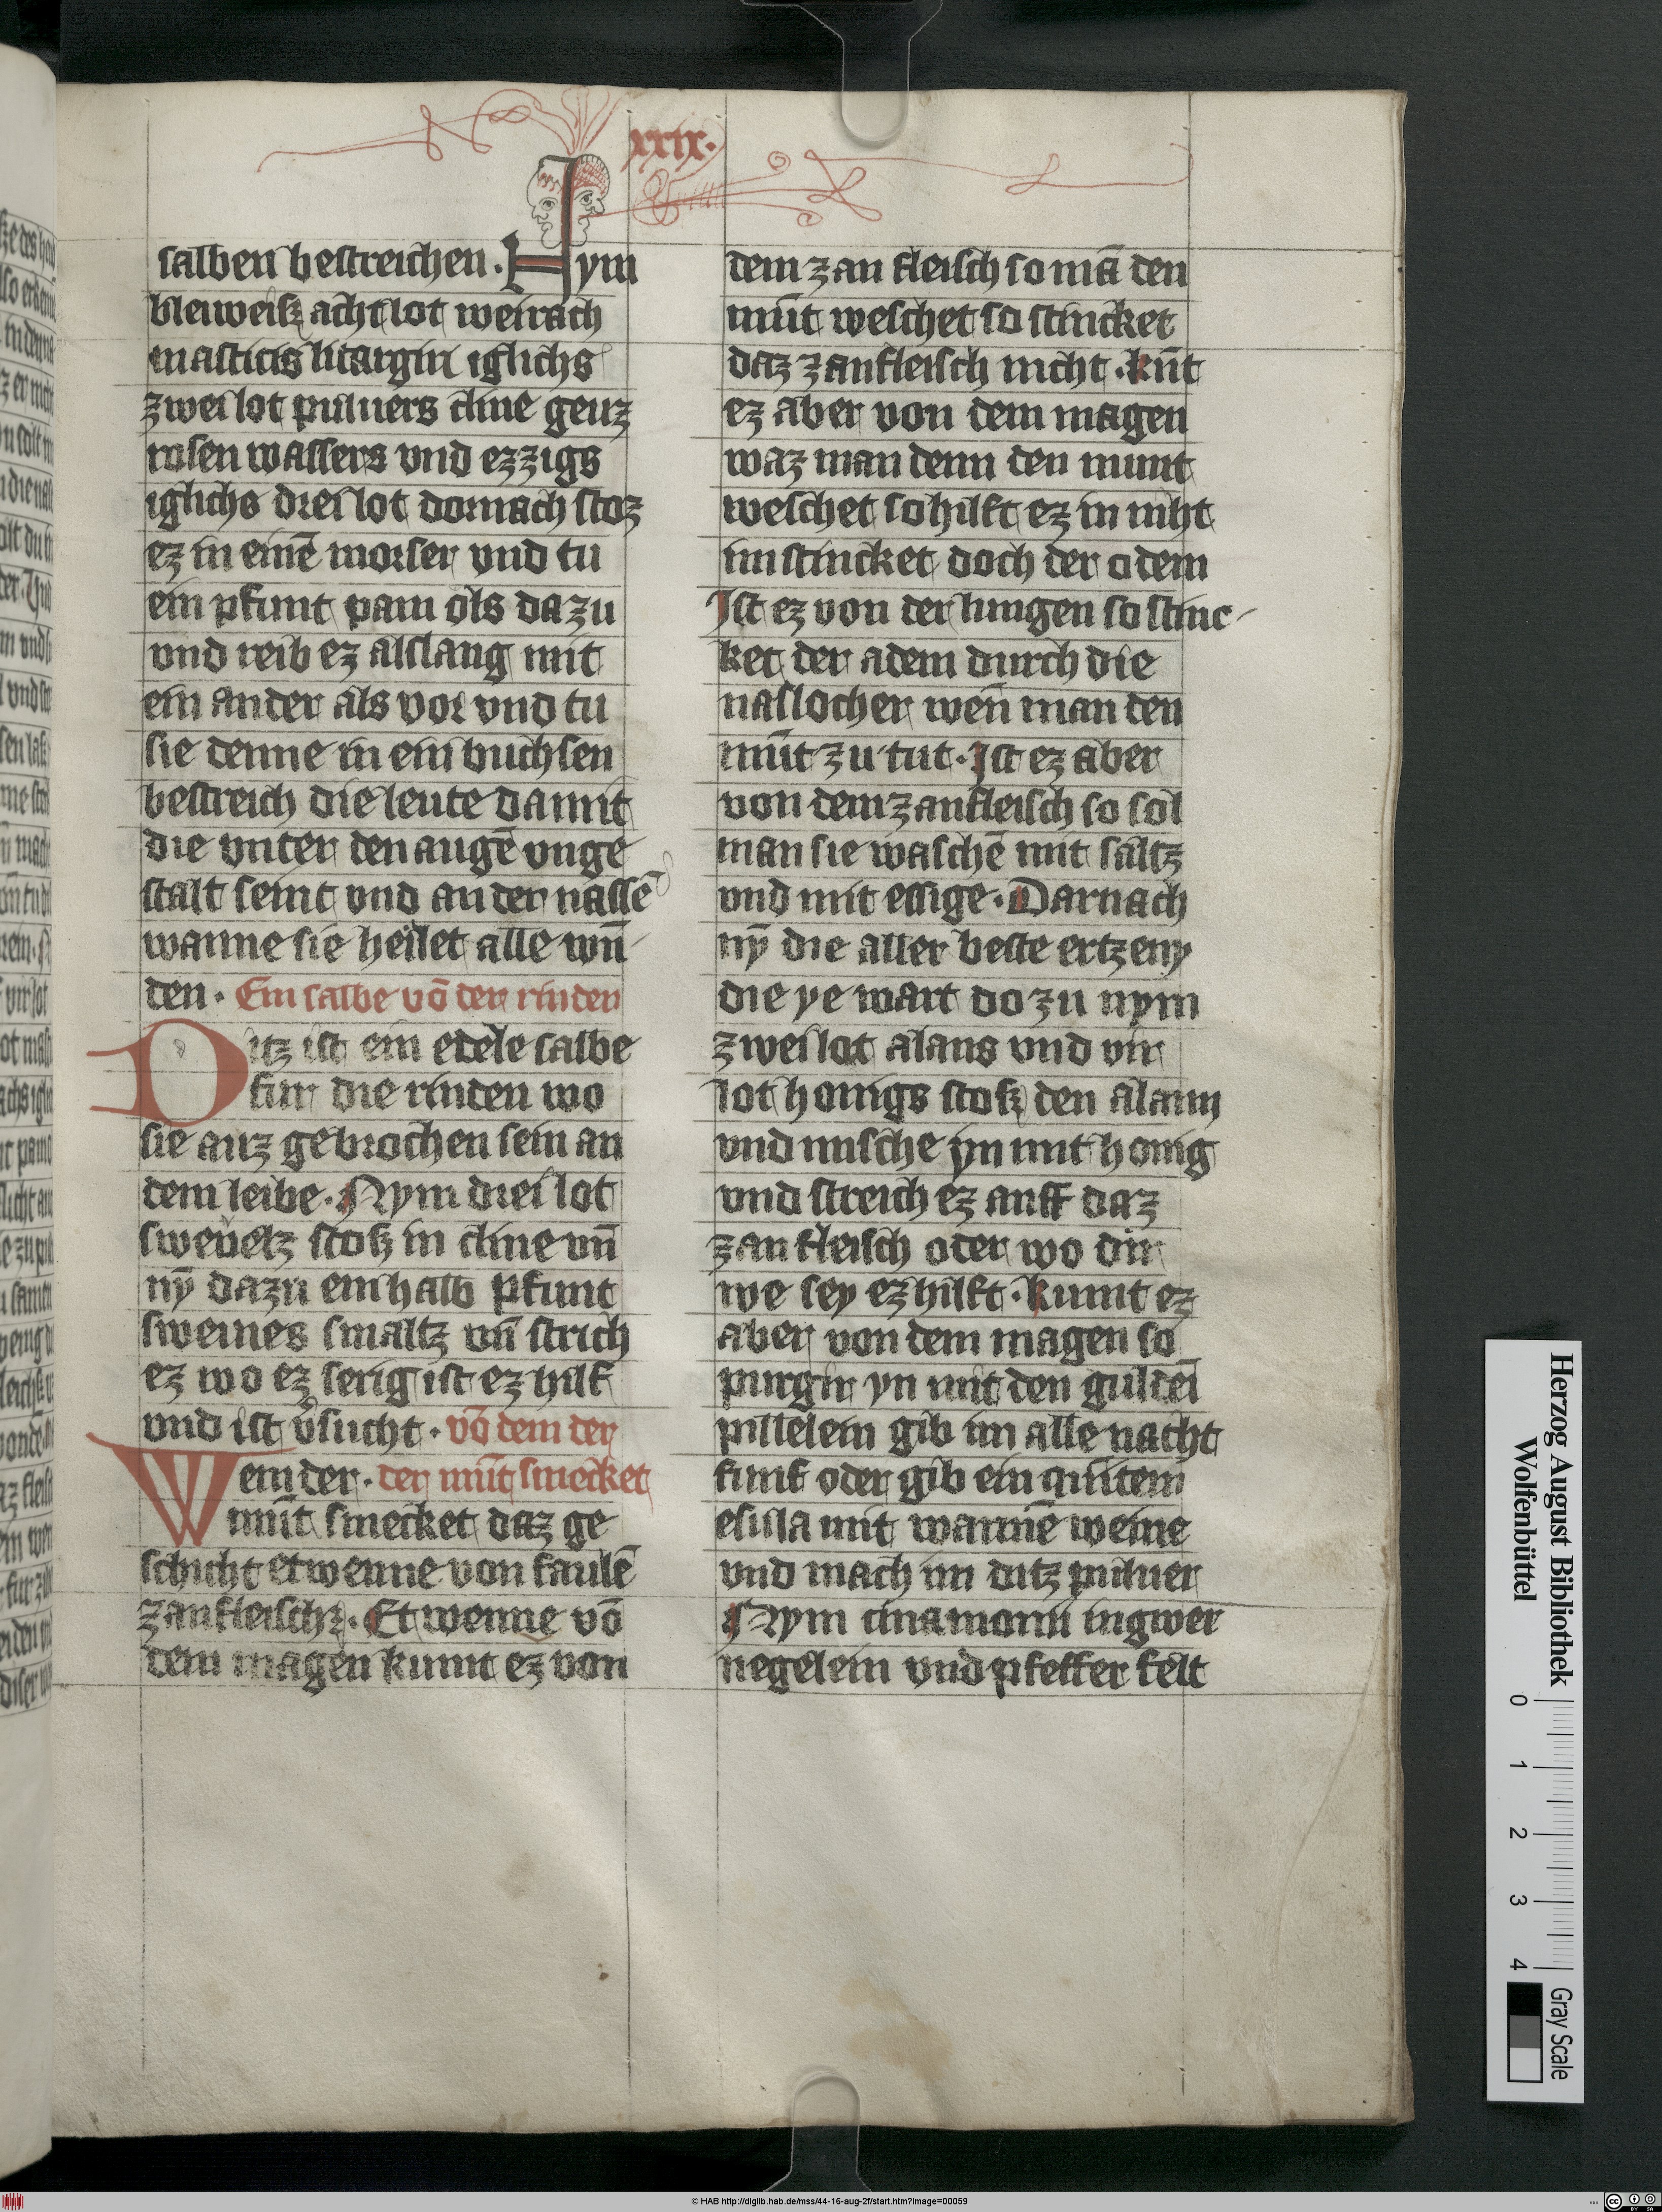 xxix.
salben bestreichen. Nym
bleiweisz acht lot weirach
masticis litargiri iglichs
zwei lot puluers cline geuz
rosen wassers vnd ezzigs
iglichs drei lot dornach stoz
ez in einē morser vnd tu
ein pfunt pam ols da zu
vnd reib ez alslang mit
ein ander als vor vnd tu
sie denne in ein buchsen
bestreich die leute da mit
die vnter den augē vnge
stalt seint vnd an der nassē
wanne sie heilet alle wn̄
den. Ein salbe vō den rinden
Ditz ist ein edele salbe
fur die rinden wo
sie auz gebrochen sein an
dem leibe. Nym drei lot
swevelz stosz in cline vn̄
ny̅ dazu ein halb pfunt
sweines smaltz vn̄ strich
ez wo ez serig ist ez hilf
vnd ist v̄sucht. vō dem der
Wem der. der mūt smecket
mūt smecket daz ge
schicht etwenne von faulē
zanfleischz. Et wenne vō
dem magen kumt ez von
dem zan fleisch so mā den
mūt weschet so stincket
daz zanfleisch nicht. kūt
ez aber von dem magen
waz man denn den munt
weschet so hilft ez in niht
im stincket doch der odem
Ist ez von der lungen so stinc-
ket der adem durch die
naslocher wen̄ man den
mūt zu tut. Ist ez aber
von dem zanfleisch so sol
man sie waschē mit saltz
vnd mit essige. Darnach
ny̅ die aller beste ertzeny
die ye wart do zu nym
zwei lot alans vnd vir
lot honigs stosz den alaun
vnd mische yn mit honig
vnd streich ez auff daz
zan fleisch oder wo dir
we sey ez hilft. kumt ez
aber von dem magen so
purgir yn mit den guldei̅
pillelein gib im alle nacht
funf oder gib ein qūitein
esula mit warmē weine
vnd mach im ditz puluer
Nym cinamomi ingwer
negelein vnd pfeffer felt
Herzog August Bibliothek
Wolfenbüttel
0 1 2 3 4
Gray Scale
© HAB http://diglib.hab.de/mss/44-16-aug-2f/start.htm?image=00059